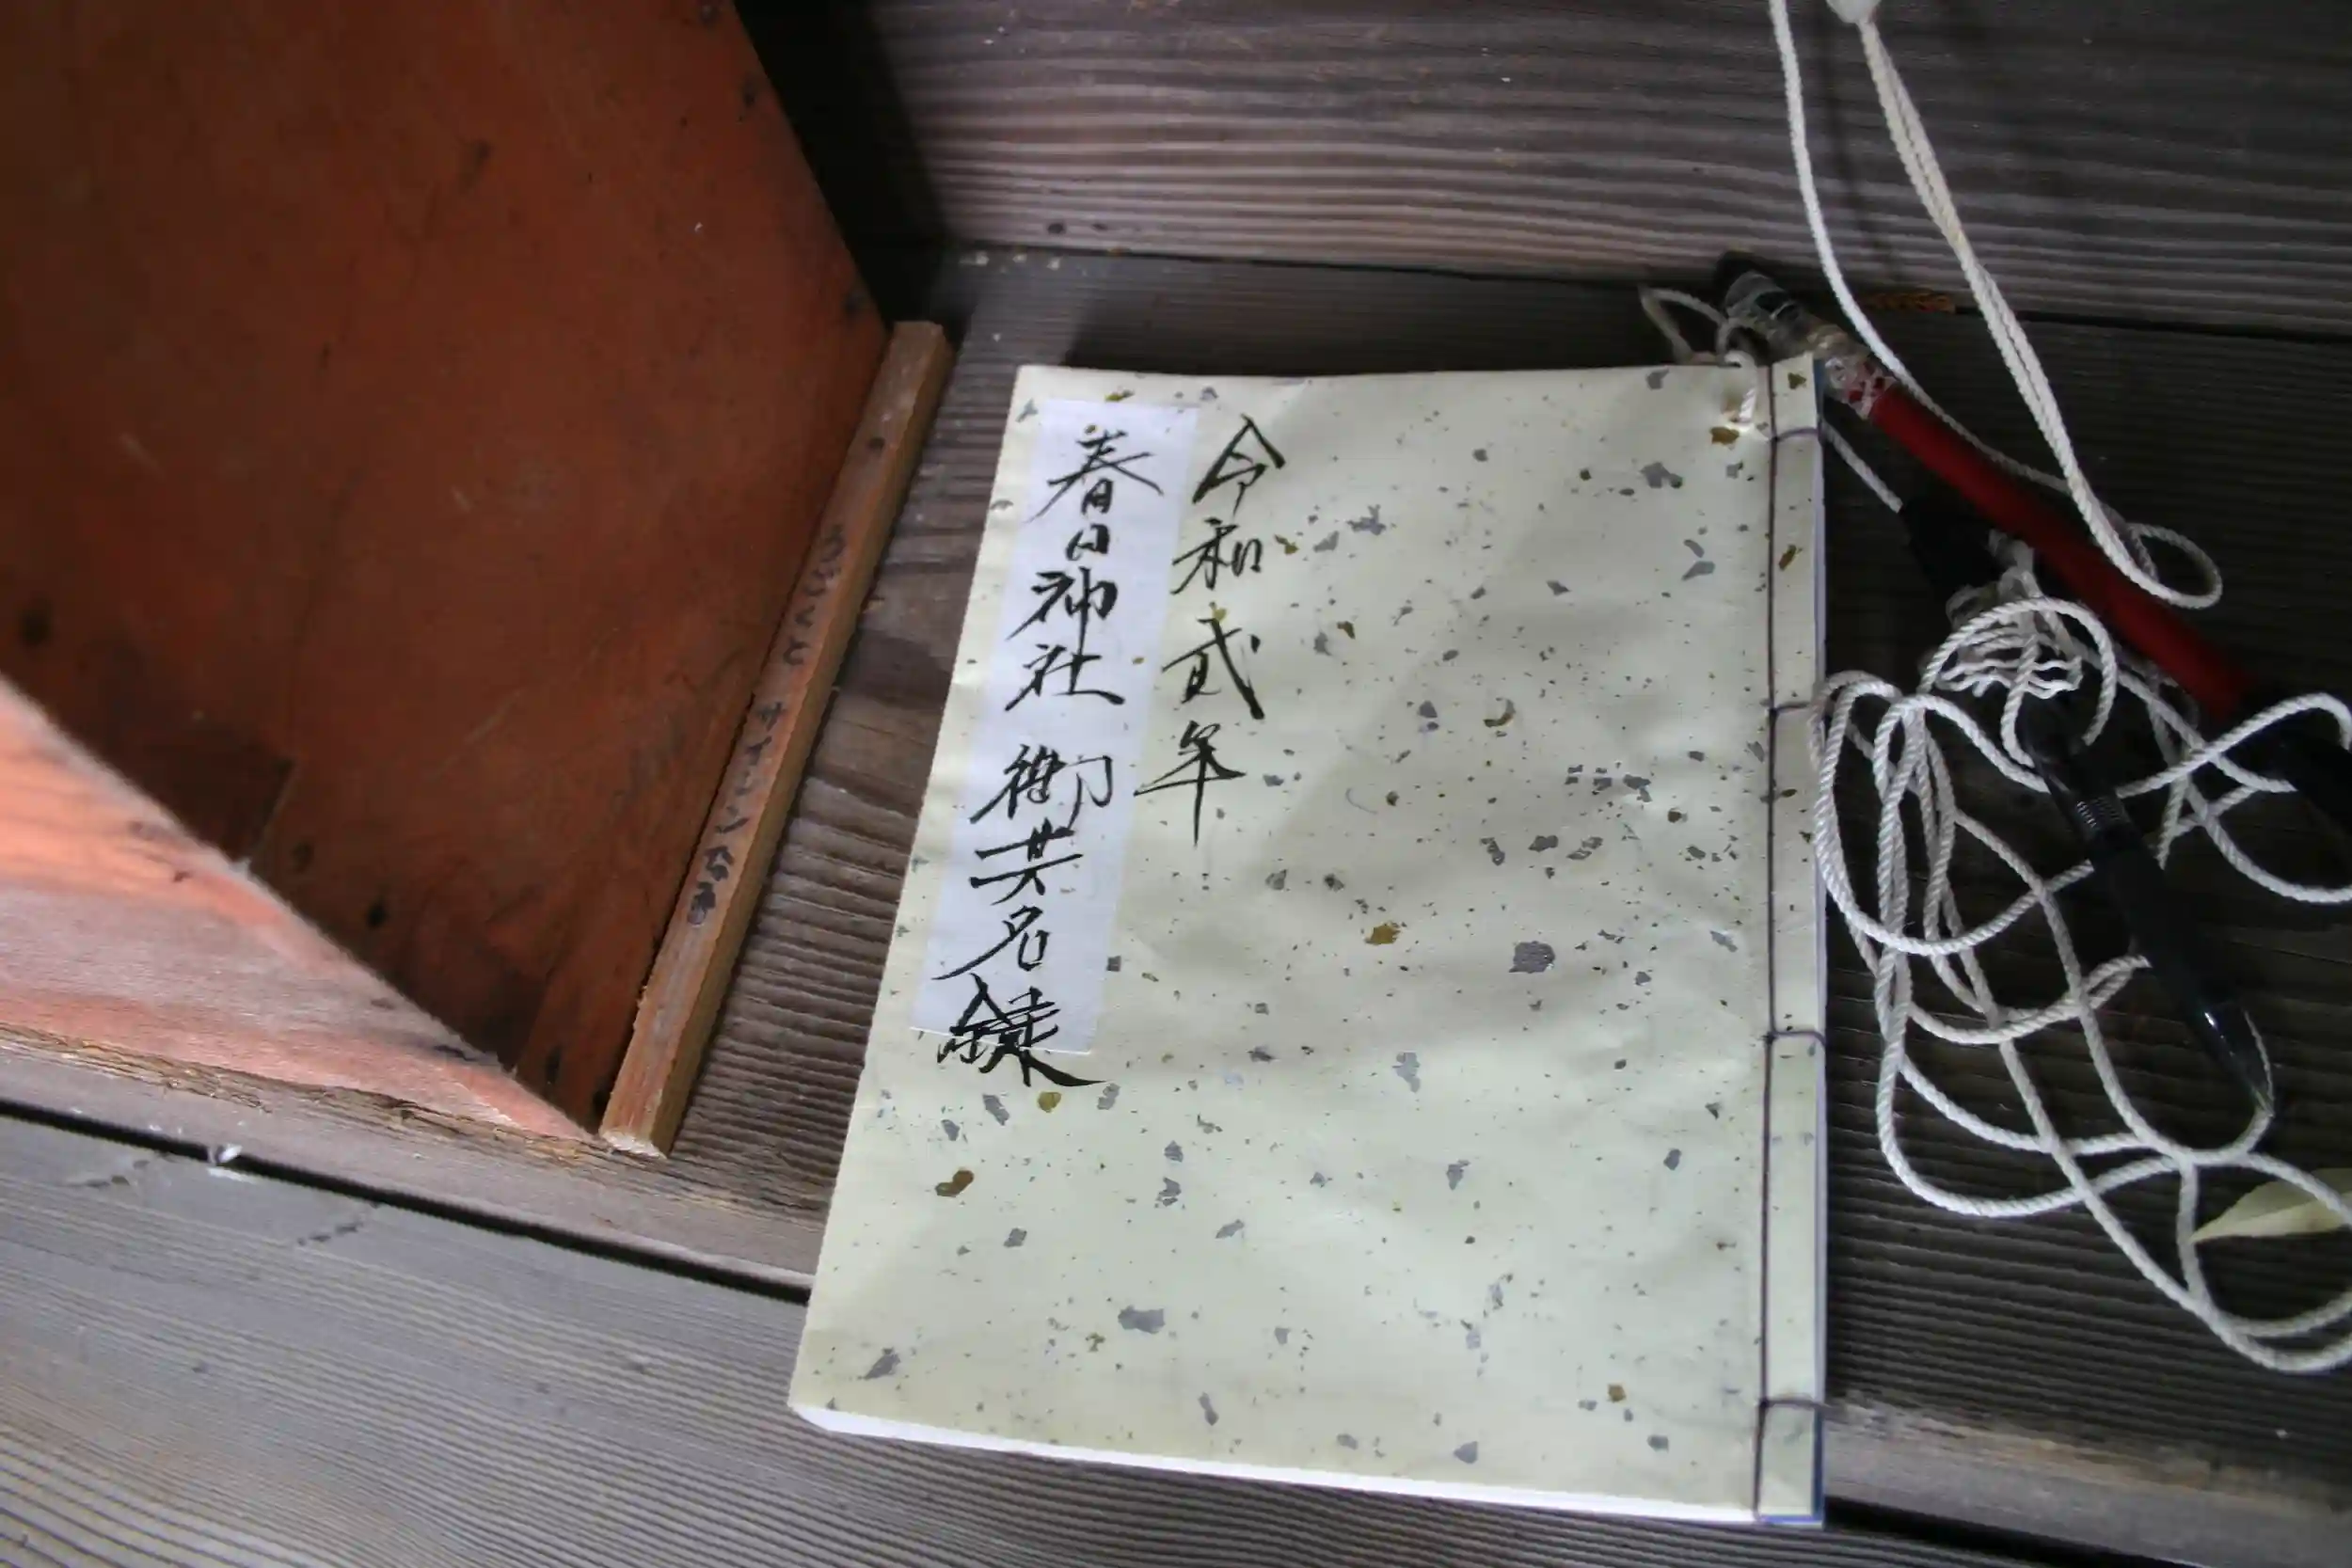 令和弍年
春日神社 御芳名録
うごくと サイレンなる